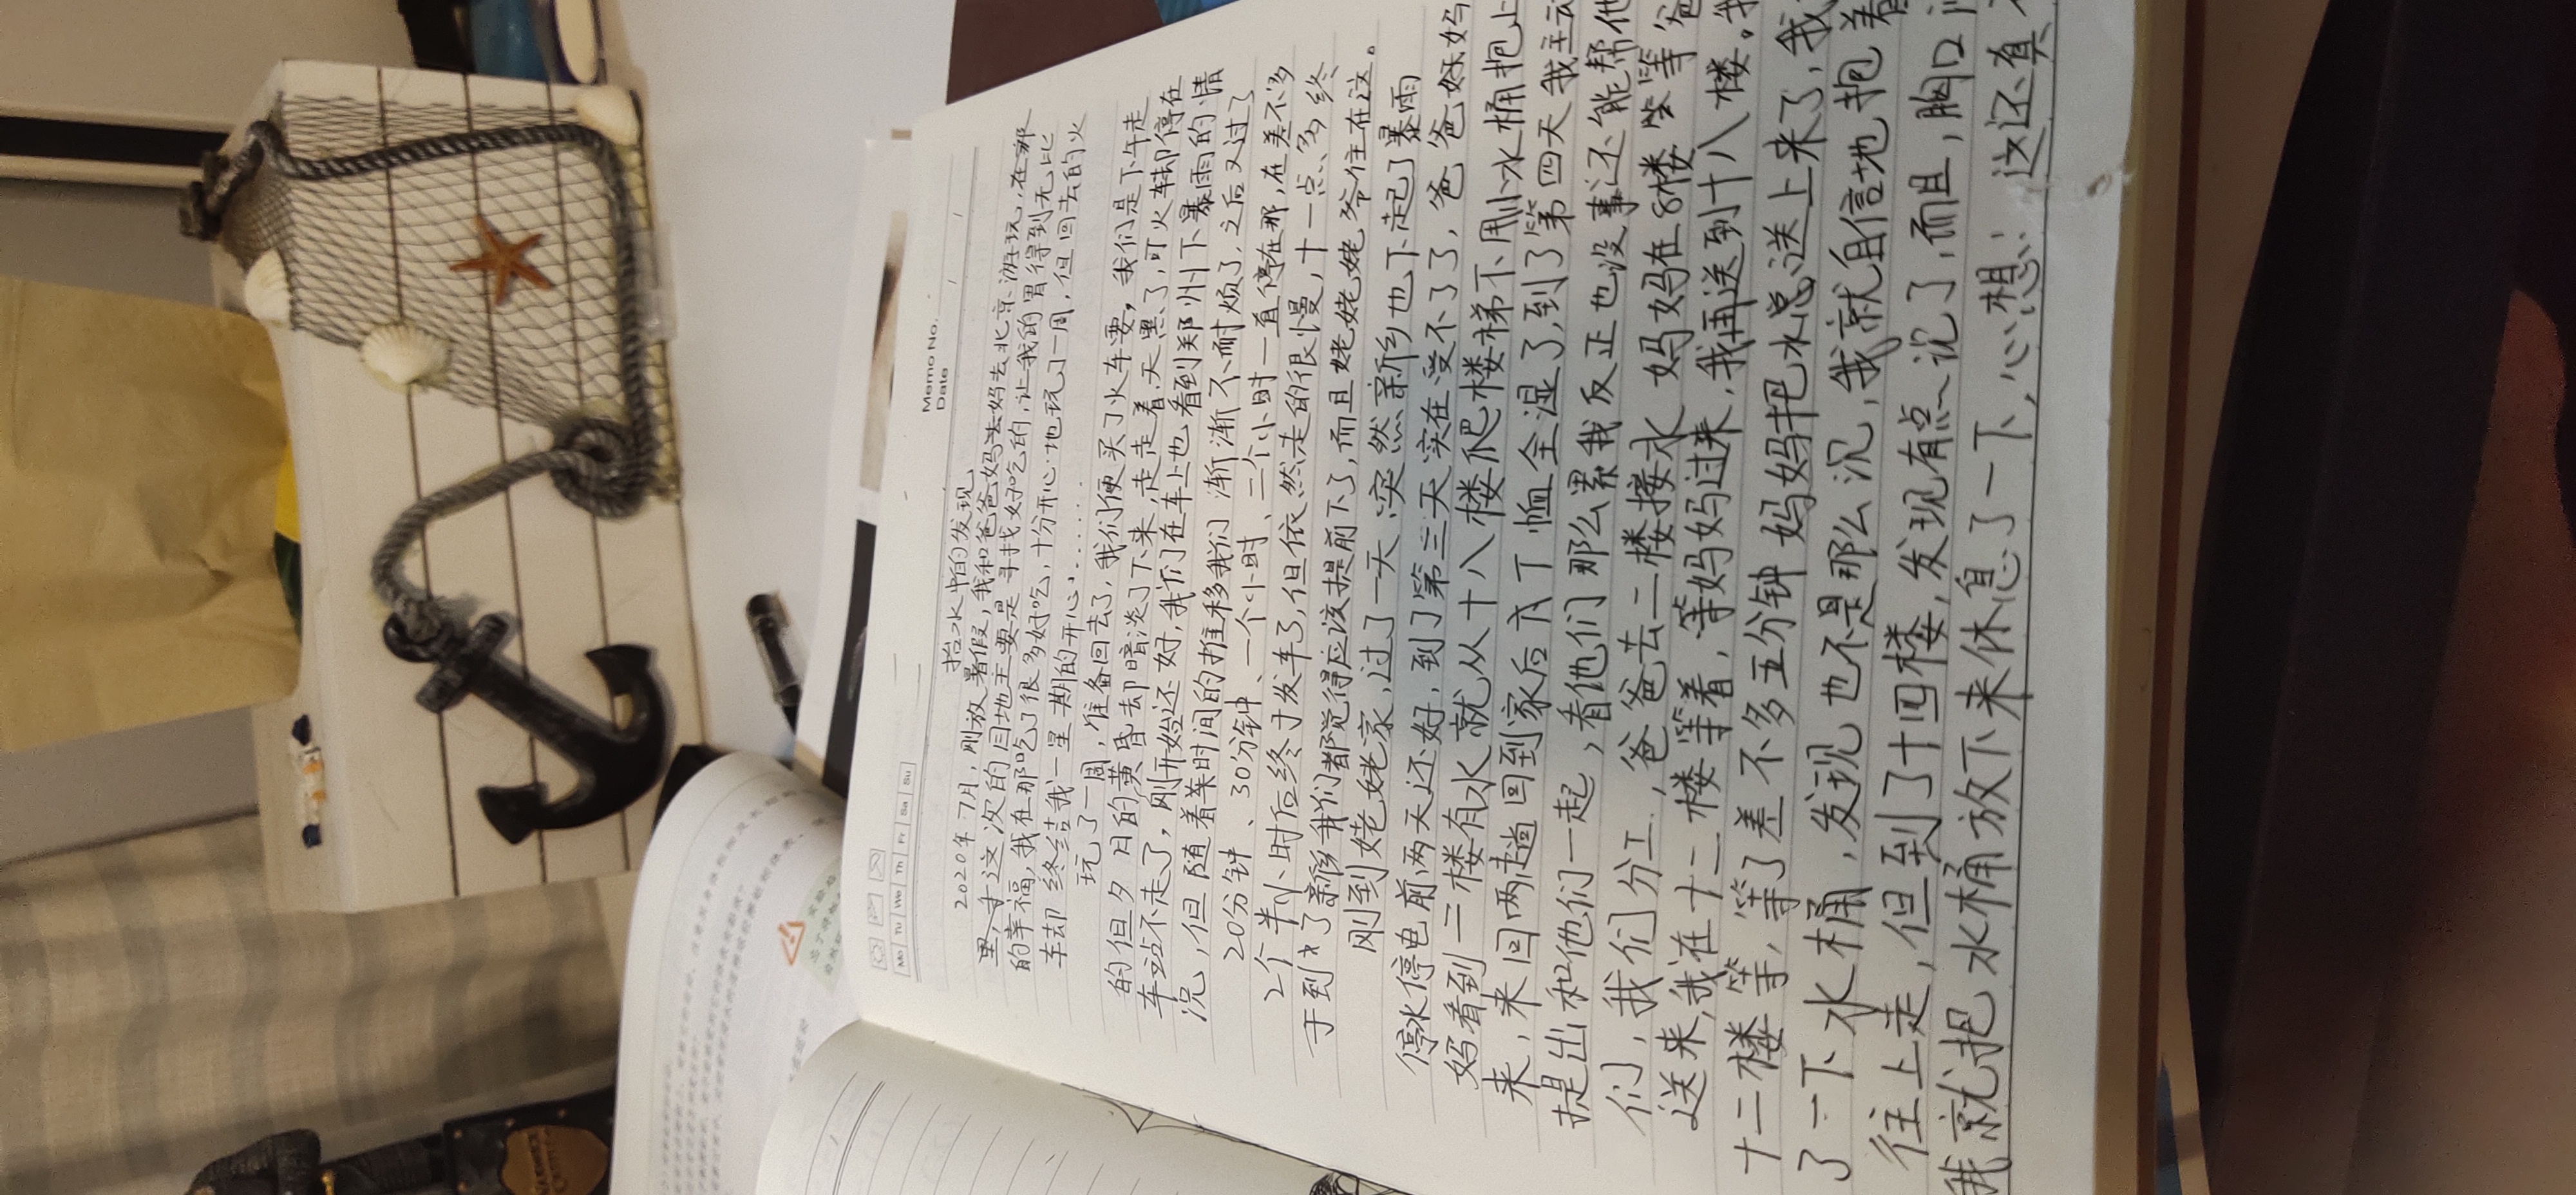 Memo No.
Date
Mo Tu We Th Fr Sa Su
抬水中的发现
2020年7月，刚放暑假，我和爸爸妈妈去北京游玩，在那
里，才这次的目地主要是寻找好吃的，让我的胃得到无比
的幸福，我在那吃了很多好吃，十分开心地玩了一周，但回去的火
车却终结我一星期的开心……
玩了一周，准备回去了，我们便买了火车票，我们是下午走
的但夕月的黄昏却暗淡了下来，走走着，天黑了，可火车却停在
车站不走了，刚开始还好，我们在车上也看到郑州下暴雨的情
况，但随着时间的推移我们渐渐不耐烦了，之后又过了
20分钟、30分钟、一个小时、二个小时一直停在那，在差不多
2个半小时后终于发车了，但依然走的很慢，十一点多终
于到了新乡我们都觉得应该提前下了，而且姥姥姥爷住在这。
刚到姥姥家，过了一天，突然新乡也下起了暴雨
停水停电前两天还好，到了第三天实在受不了了，爸爸妈妈
妈看到二楼有水就从十八楼爬楼梯下用小水桶抱上
来，来回两趟回到家后，T恤全湿了，到了第四天我主动
提出和他们一起，看他们那么累我反正也没事还能帮他
们，我们分工，爸爸去二楼接水 妈妈在8楼等爸
送来，我在十二楼等着，等妈妈过来，我再送到十八楼。我
十二楼等，等了差不多五分钟妈妈把水总送上来了，我
了一下水桶，发现也不是那么沉，我就自信地抱着
往上走，但到了十四楼，发现有点沉了，而且，胸口
我就把水桶放下来休息了一下，心想：这还真